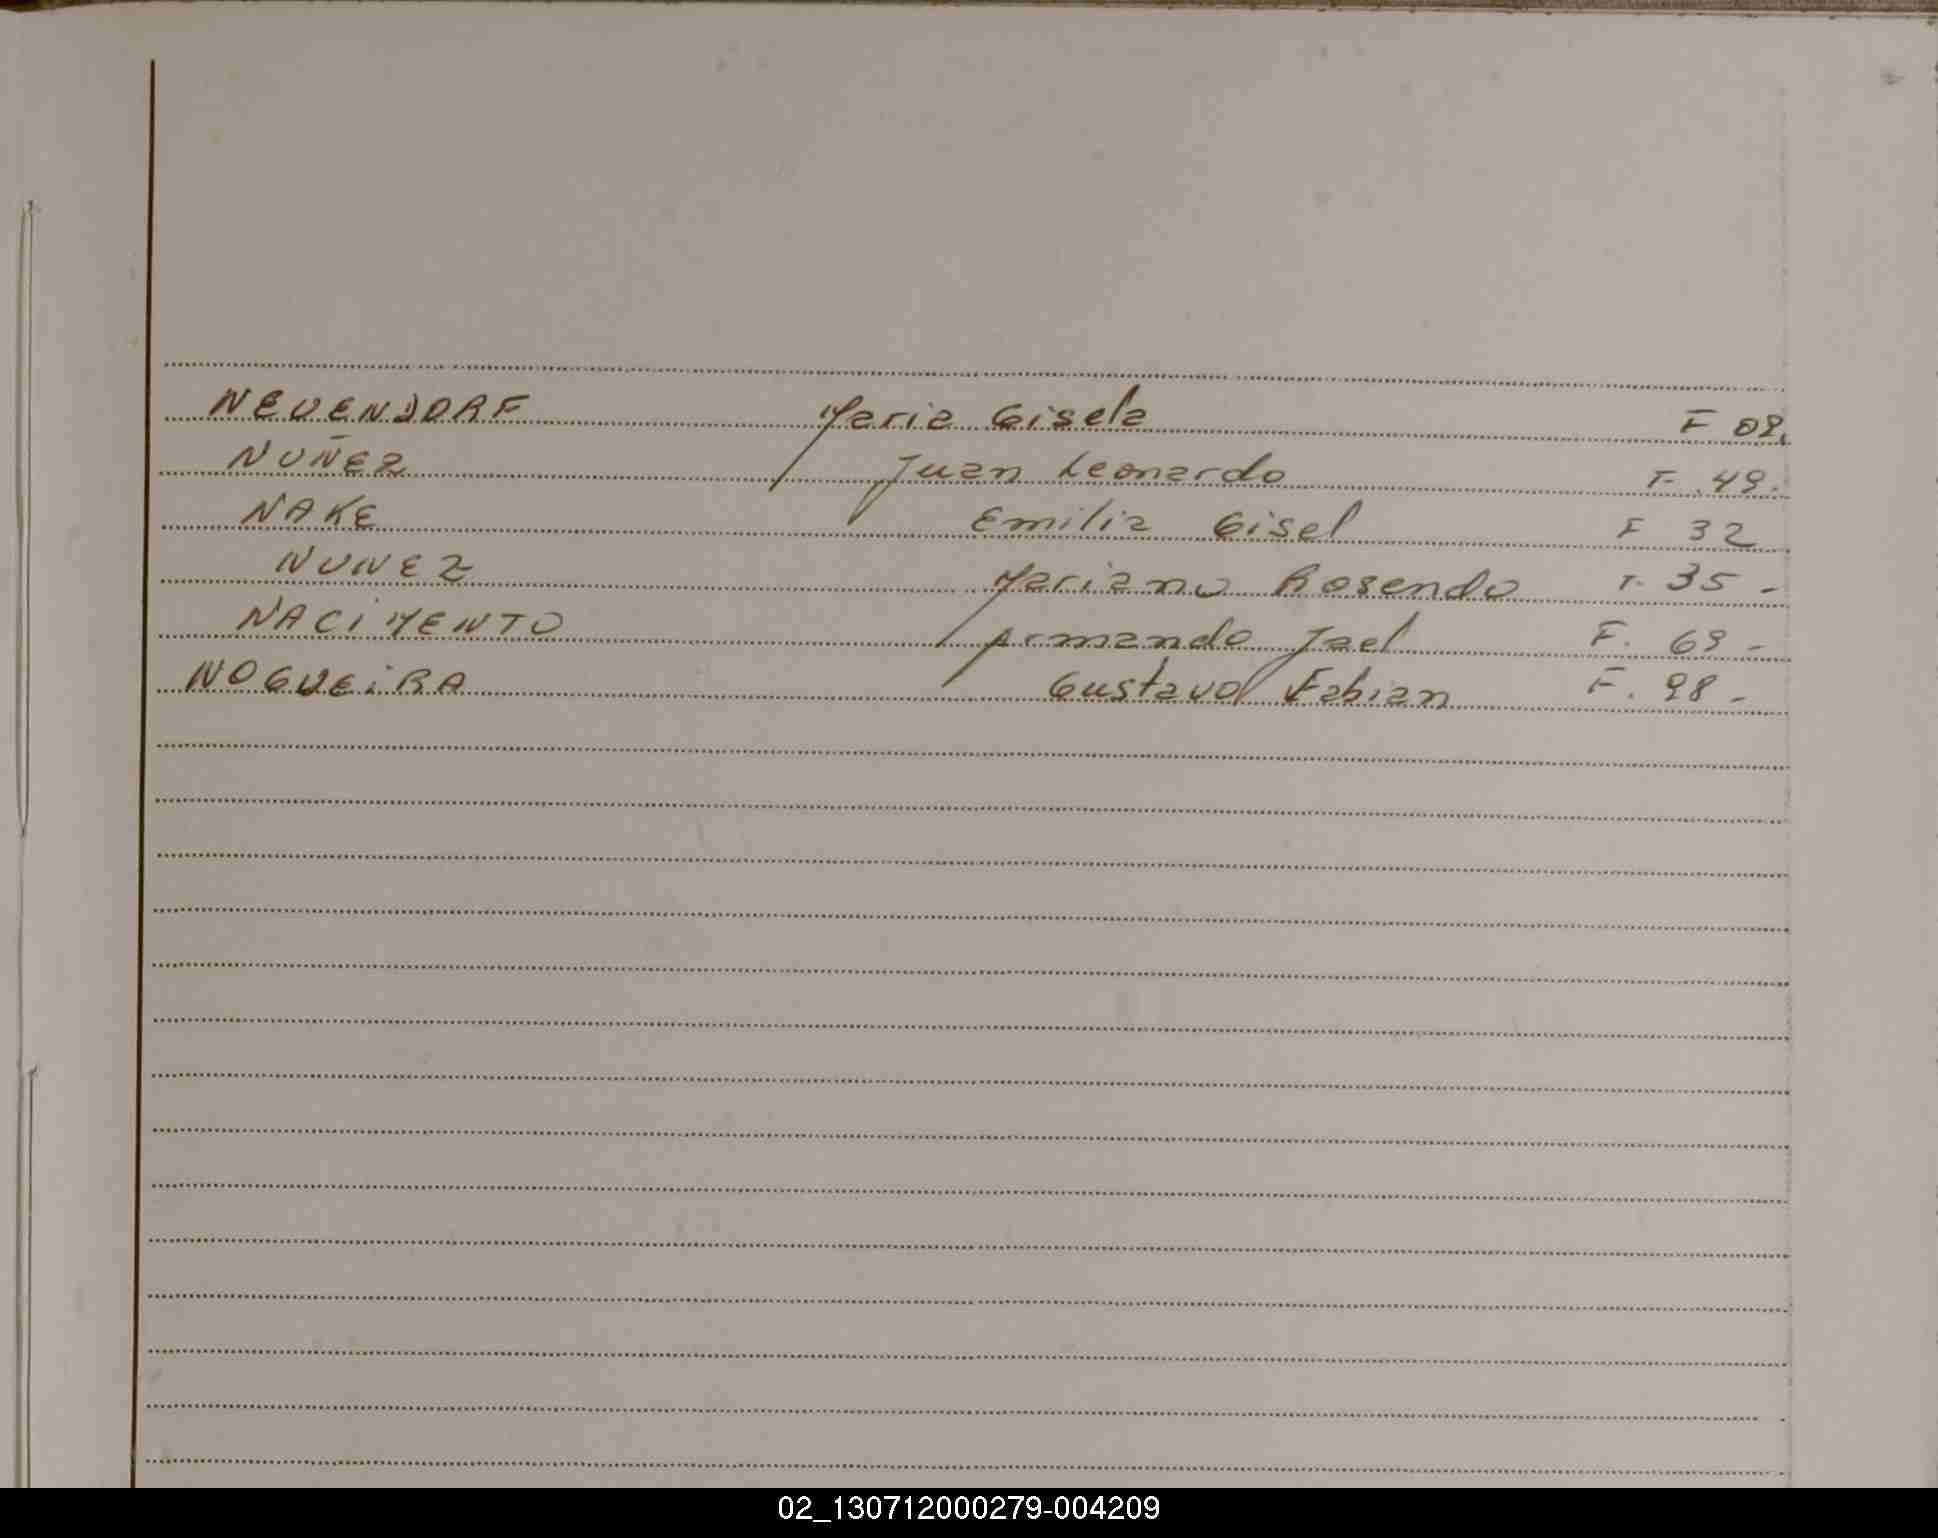 NEUENDORF Maria Gisela F 09.
NUÑEZ Juan Leonardo F. 49.
NAKE Emilia Gisel F 32
NUNEZ Mariano Rosendo F. 35 -
NACIMENTO Armando Jael F. 69 -
NOGUEIRA Gustavo Fabian F. 98 -
02_130712000279-004209